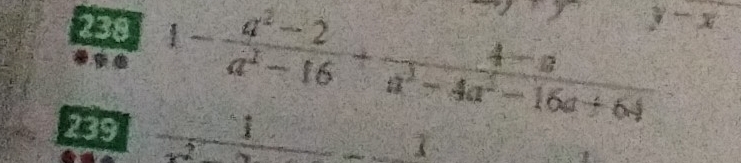 y - x
238 1 - \frac{a^2 - 2}{a^2 - 16} + \frac{4 - a}{a^3 - 4a^2 - 16a + 64}
239 1